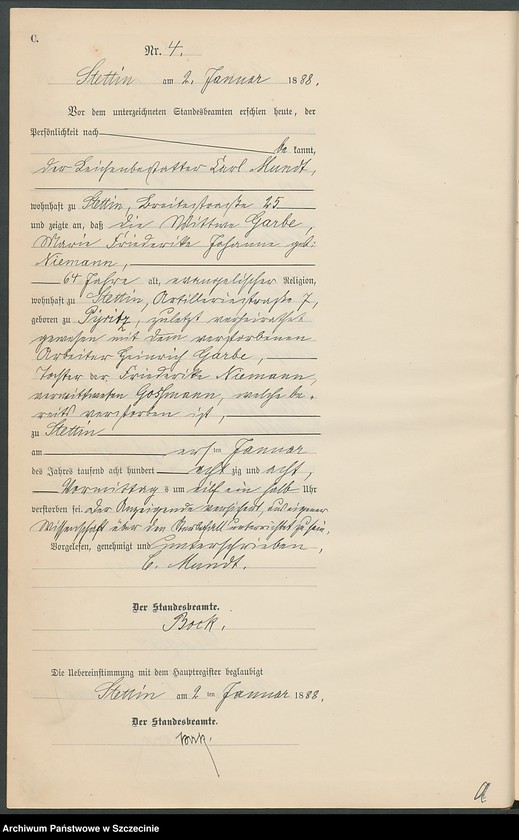 C.
Nr. 4.
Stettin am 2. Januar 1888.
Vor dem unterzeichneten Standesbeamten erschien heute, der
Persönlichkeit nach
be kannt,
der Leichenbestatter Carl Mundt,
wohnhaft zu Stettin, Breitestraße 25
und zeigte an, daß die Wittwe Garbe,
Marie Friederike Johanne geb:
Niemann,
64 Jahre alt, evangelischer Religion,
wohnhaft zu Stettin, Artilleriestraße 7,
geboren zu Pyritz, zuletzt verheirathet
gewesen mit dem verstorbenen
Arbeiter Heinrich Garbe,
Tochter der Friederike Niemann,
verwittweten Goßmann, welche be-
reits verstorben ist,
zu Stettin
am ersten Januar
des Jahres tausend acht hundert acht zig und acht,
Vormittags um eilf ein halb Uhr
verstorben sei. Der Anzeigende versichert, aus eigener
Wissenschaft über den Sterbefall unterrichtet zu sein.
Vorgelesen, genehmigt und unterschrieben,
C. Mundt.
Der Standesbeamte.
Bock.
Die Uebereinstimmung mit dem Hauptregister beglaubigt
Stettin am 2 ten Januar 1888.
Der Standesbeamte.
Bock.
Archiwum Państwowe w Szczecinie